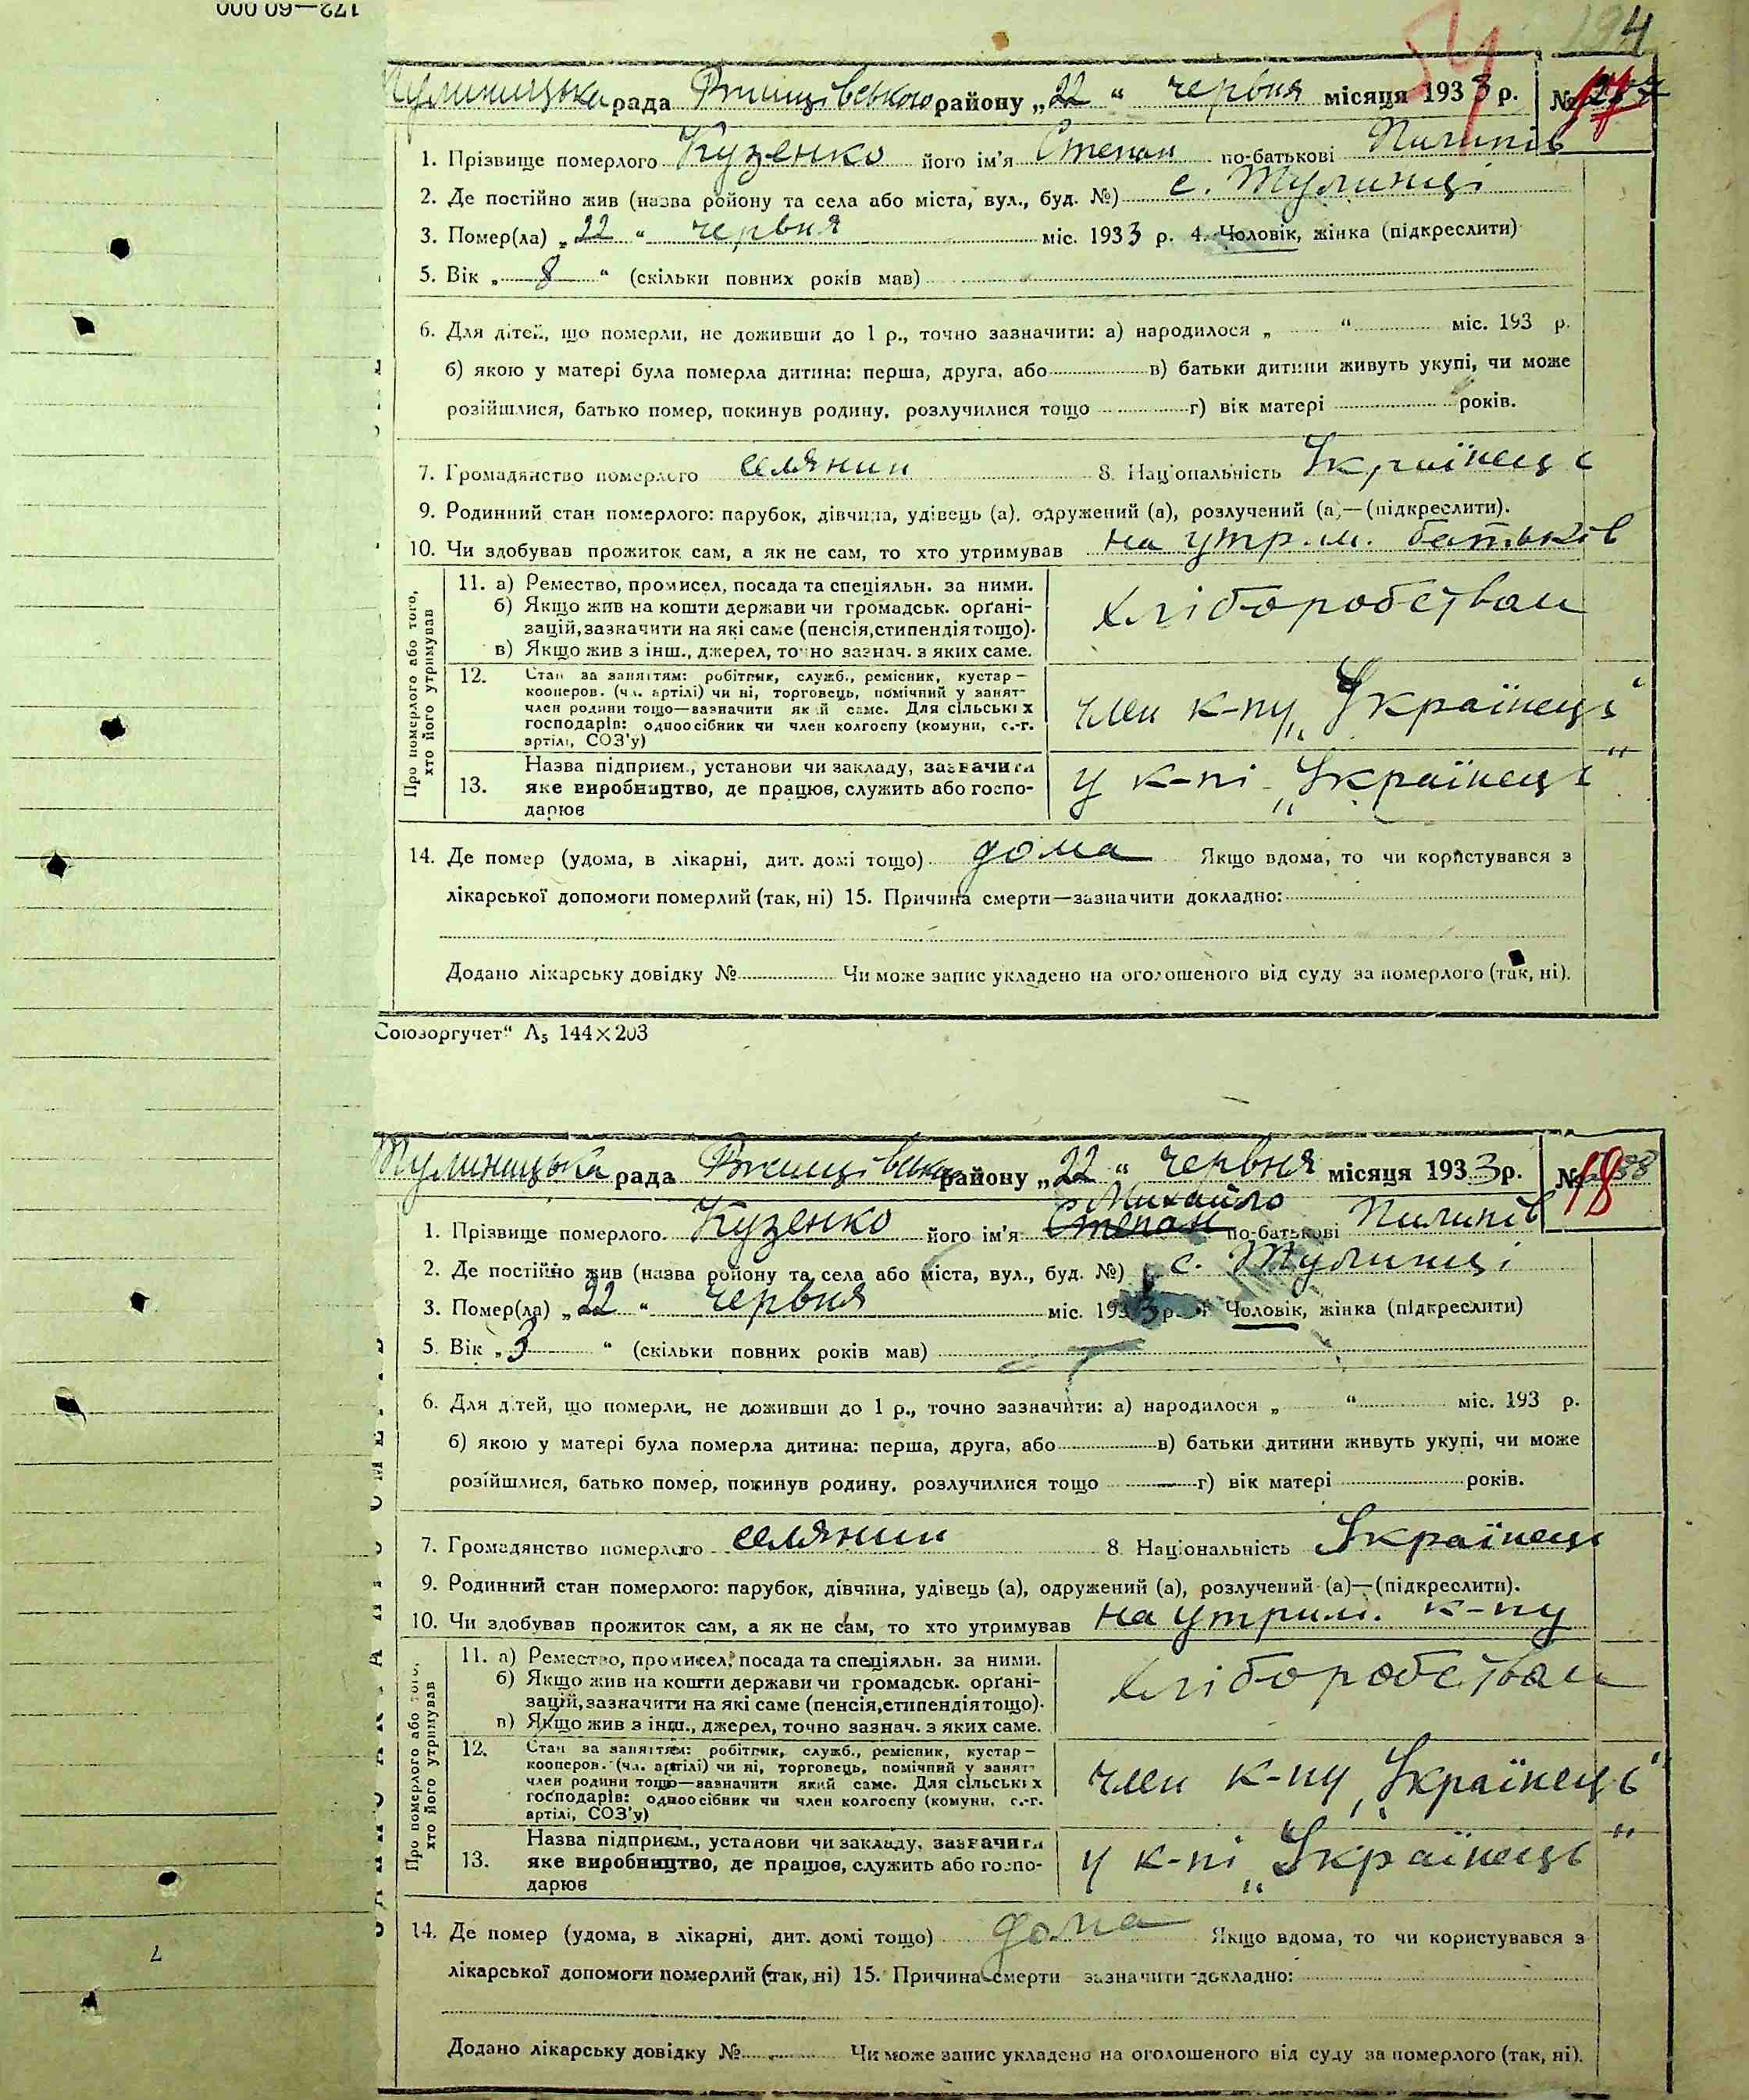 172—60 000
194
54
Тулиницька рада Ржищівського району „22“ червня місяця 1933 р. № 17
1. Прізвище померлого Кузенко його ім'я Степан по-батькові Пилипів
2. Де постійно жив (назва району та села або міста, вул., буд. №) с. Тулинці
3. Помер(ла) „22“ червня міс. 1933 р. 4. Чоловік, жінка (підкреслити)
5. Вік „8“ (скільки повних років мав)
6. Для дітей, що померли, не доживши до 1 р., точно зазначити: а) народилося „ “ міс. 193 р.
б) якою у матері була померла дитина: перша, друга, або в) батьки дитини живуть укупі, чи може
розійшлися, батько помер, покинув родину, розлучилися тощо г) вік матері років.
7. Громадянство померлого селянин 8. Національність Українець
9. Родинний стан померлого: парубок, дівчина, удівець (а), одружений (а), розлучений (а)—(підкреслити).
10. Чи здобував прожиток сам, а як не сам, то хто утримував на утр.м. батьків
Про померлого або того,
хто його утримував
11. а) Ремество, промисел, посада та спеціяльн. за ними.
б) Якщо жив на кошти держави чи громадськ. орґані-
зацій, зазначити на які саме (пенсія, стипендія тощо).
в) Якщо жив з інш., джерел, точно зазнач. з яких саме.
хліборобством
12. Стан за заняттям: робітник, служб., ремісник, кустар—
кооперов. (чл. артілі) чи ні, торговець, помічний у занят-
член родини тощо—зазначити який саме. Для сільських
господарів: одноосібник чи член колгоспу (комуни, с.-г.
артілі, СОЗ'у)
член к-пу „Українець“
13. Назва підприєм., установи чи закладу, зазначити
яке виробництво, де працює, служить або госпо-
дарює
у к-пі „Українець“
14. Де помер (удома, в лікарні, дит. домі тощо) дома Якщо вдома, то чи користувався з
лікарської допомоги померлий (так, ні) 15. Причина смерти—зазначити докладно:
Додано лікарську довідку № Чи може запис укладено на оголошеного від суду за померлого (так, ні).
Союзоргучет“ А5 144×203
Тулиницька рада Ржищівського району „22“ червня місяця 1933 р. № 18
1. Прізвище померлого Кузенко його ім'я Степан Михайло по-батькові Пилипів
2. Де постійно жив (назва району та села або міста, вул., буд. №) с. Тулинці
3. Помер(ла) „22“ червня міс. 1933 р. Чоловік, жінка (підкреслити)
5. Вік „3“ (скільки повних років мав)
6. Для дітей, що померли, не доживши до 1 р., точно зазначити: а) народилося „ “ міс. 193 р.
б) якою у матері була померла дитина: перша, друга, або в) батьки дитини живуть укупі, чи може
розійшлися, батько помер, покинув родину, розлучилися тощо г) вік матері років.
7. Громадянство померлого селянин 8. Національність Українець
9. Родинний стан померлого: парубок, дівчина, удівець (а), одружений (а), розлучений (а)—(підкреслити).
10. Чи здобував прожиток сам, а як не сам, то хто утримував на утрим. к-пу
Про померлого або того,
хто його утримував
11. а) Ремество, промисел, посада та спеціяльн. за ними.
б) Якщо жив на кошти держави чи громадськ. орґані-
зацій, зазначити на які саме (пенсія, стипендія тощо).
в) Якщо жив з інш., джерел, точно зазнач. з яких саме.
хліборобством
12. Стан за заняттям: робітник, служб., ремісник, кустар—
кооперов. (чл. артілі) чи ні, торговець, помічний у занят-
член родини тощо—зазначити який саме. Для сільських
господарів: одноосібник чи член колгоспу (комуни, с.-г.
артілі, СОЗ'у)
член к-пу „Українець“
13. Назва підприєм., установи чи закладу, зазначити
яке виробництво, де працює, служить або госпо-
дарює
у к-пі „Українець“
14. Де помер (удома, в лікарні, дит. домі тощо) дома Якщо вдома, то чи користувався з
лікарської допомоги померлий (так, ні) 15. Причина смерти зазначити докладно:
Додано лікарську довідку № Чи може запис укладено на оголошеного від суду за померлого (так, ні).